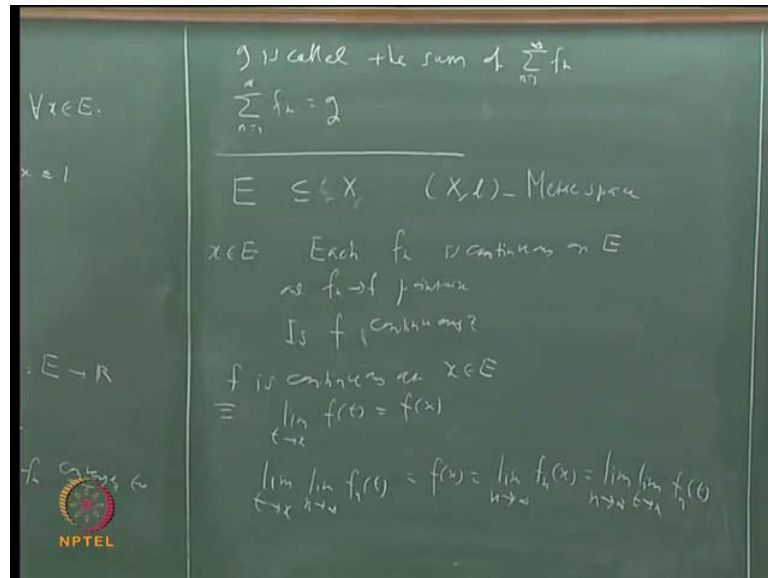 ∀x∈E.
x = 1
: E → R
fₙ
g is called the sum of ∑_{n=1}^{∞} fₙ
∑_{n=1}^{∞} fₙ = g
E ⊆ X, (X,d) - Metric space
x∈E Each fₙ is continuous on E
and fₙ→f pointwise
Is f continuous?
f is continuous at x∈E
≡ lim_{t→x} f(t) = f(x)
lim_{t→x} lim_{n→∞} fₙ(t) = f(x) = lim_{n→∞} fₙ(x) = lim_{n→∞} lim_{t→x} fₙ(t)
NPTEL